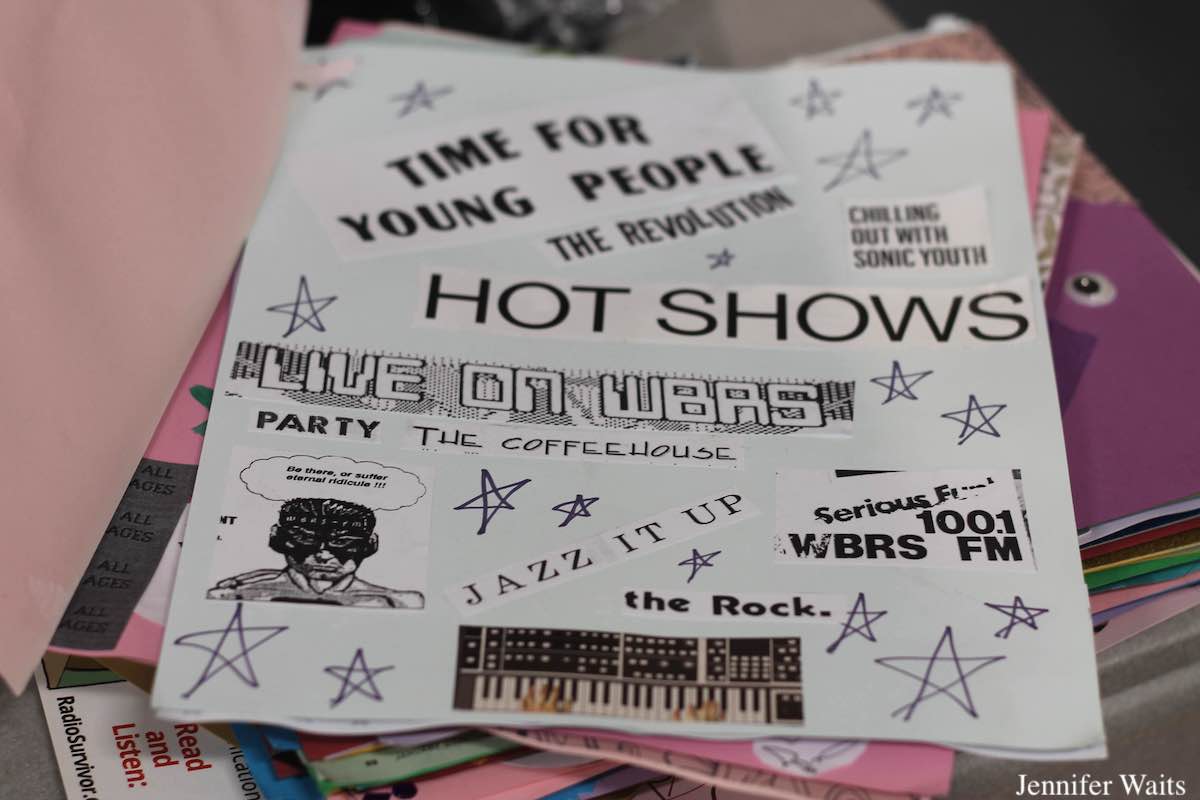 TIME FOR
YOUNG PEOPLE
THE REVOLUTION
CHILLING
OUT WITH
SONIC YOUTH
HOT SHOWS
LIVE ON WBRS
PARTY
THE COFFEEHOUSE
Be there, or suffer
eternal ridicule !!!
NT
JAZZ IT UP
Serious Fun!
100.1
WBRS FM
the Rock.
ALL
AGES
ALL
AGES
ALL
AGES
ALL
AGES
RadioSurvivor.c
Read
and
Listen:
lication
Jennifer Waits